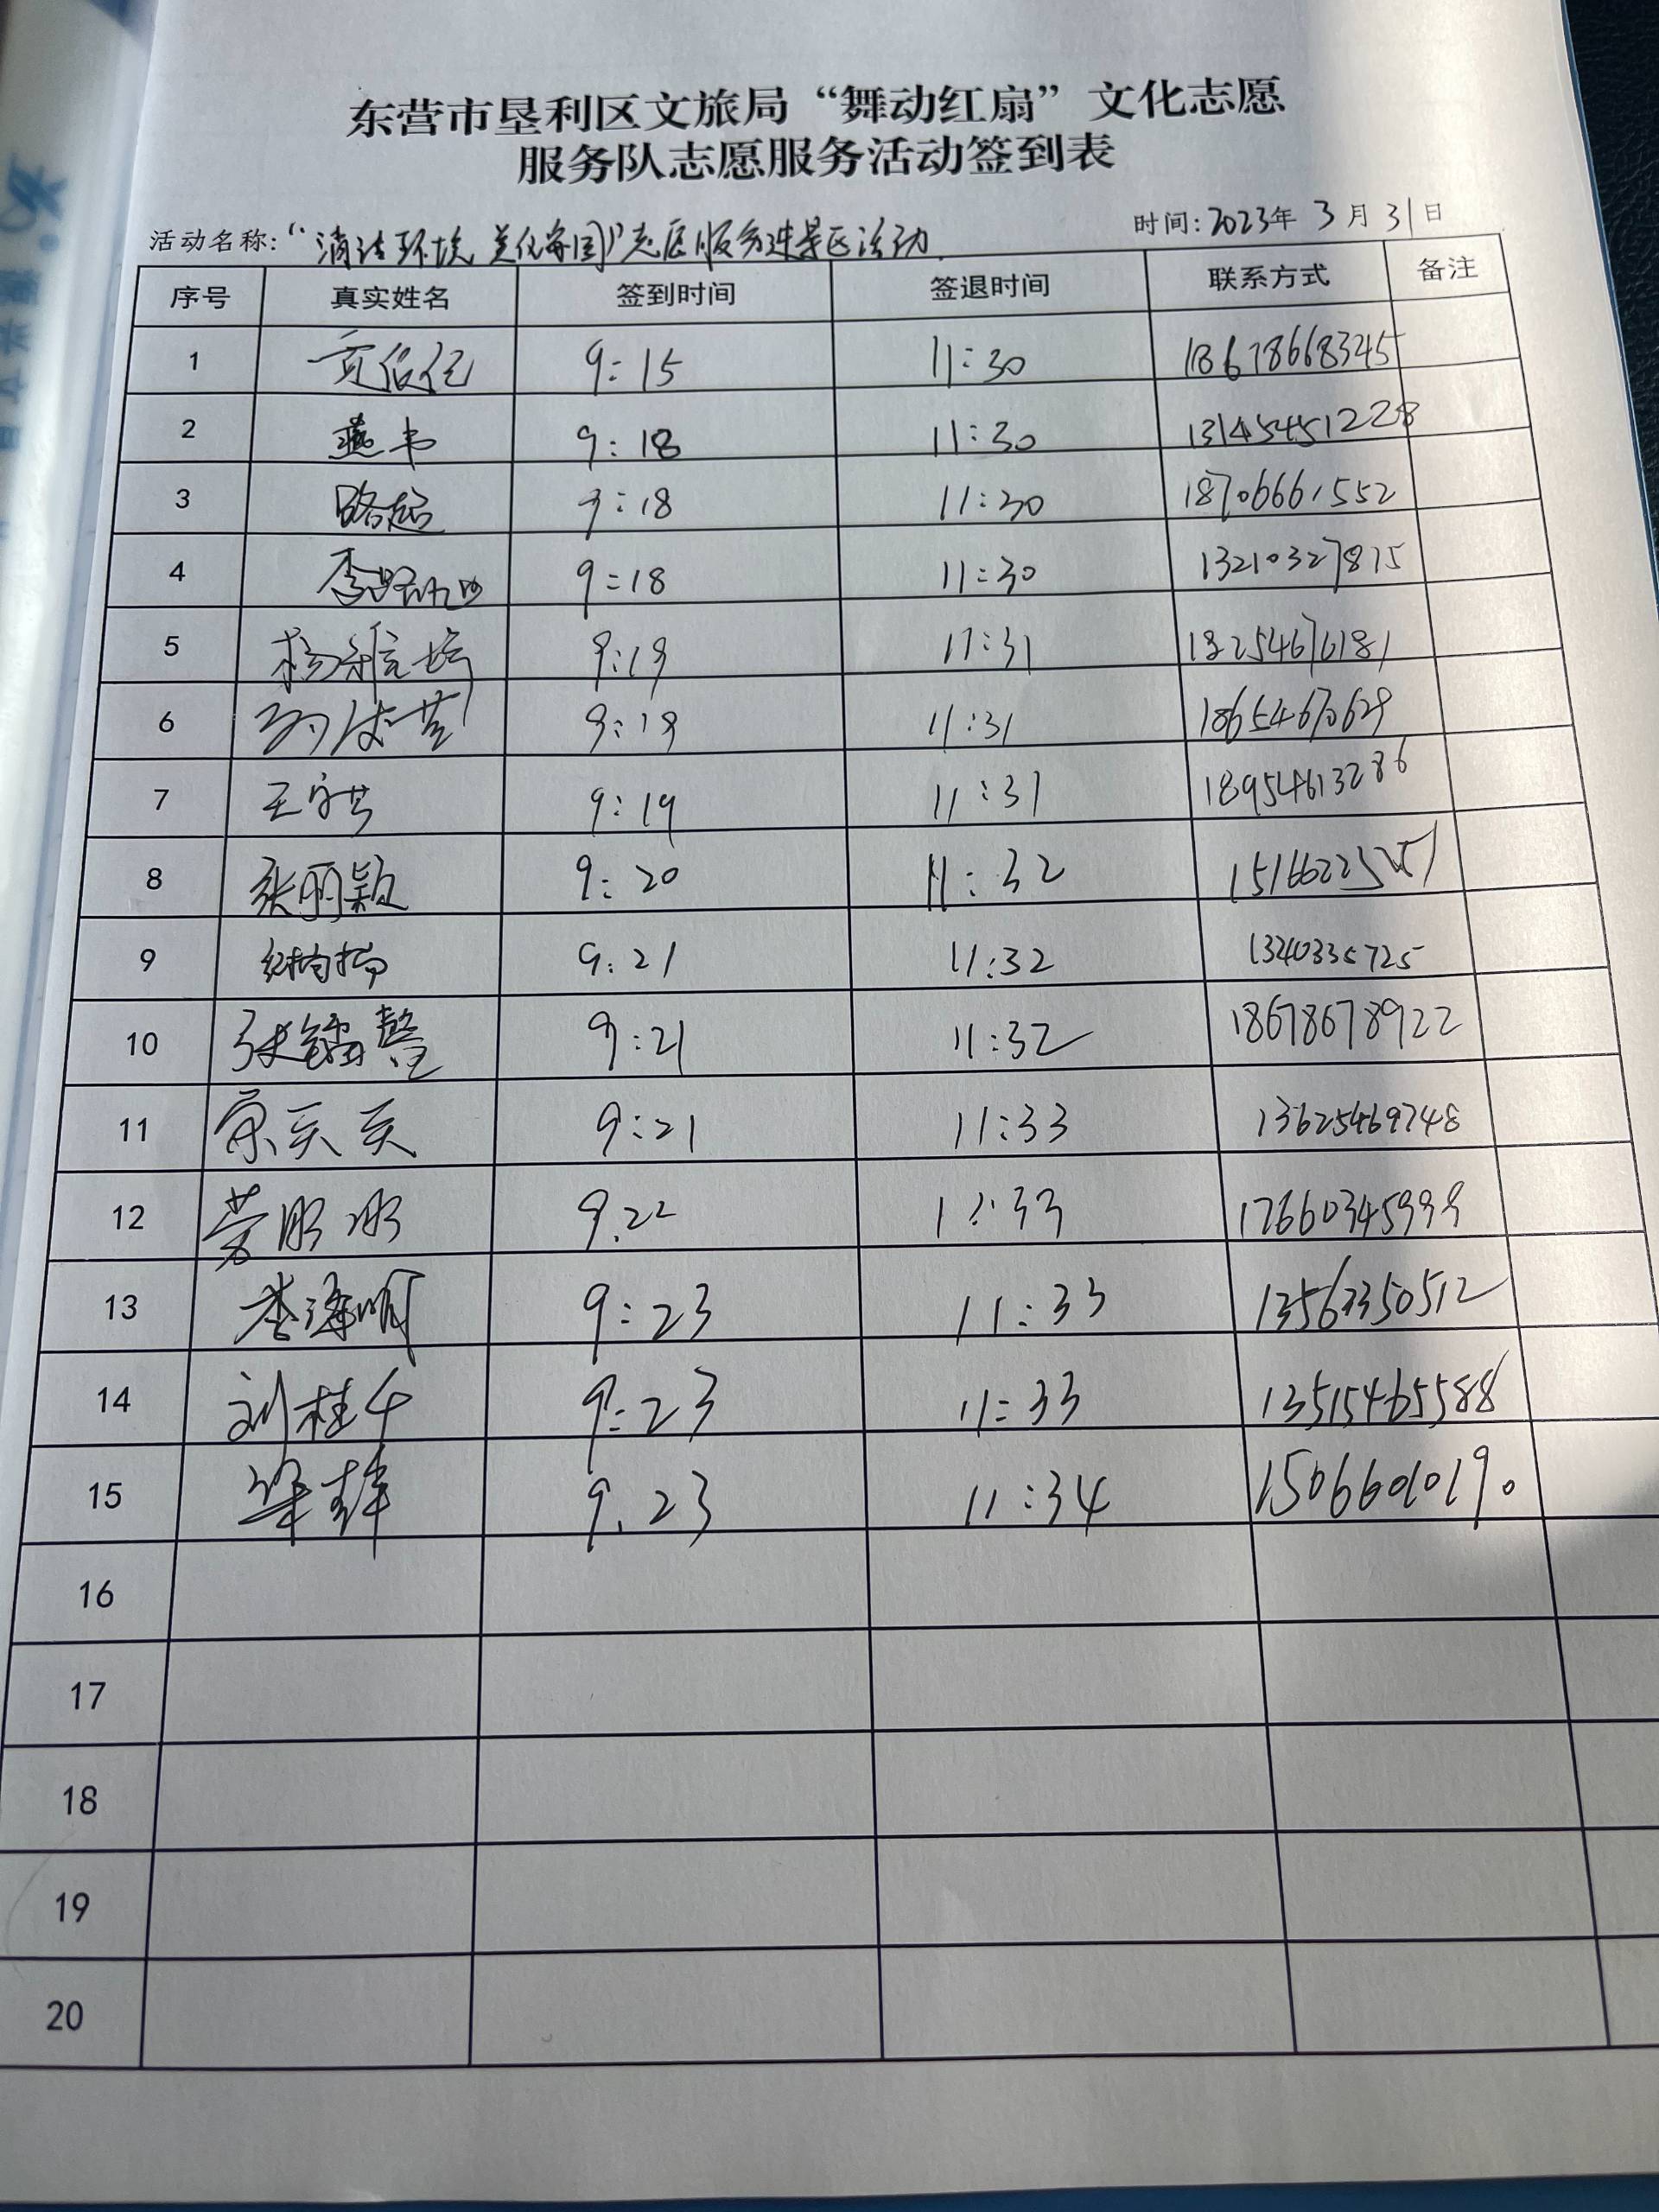 东营市垦利区文旅局“舞动红扇”文化志愿
服务队志愿服务活动签到表
活动名称:“清洁环境 美化家园”志愿服务进景区活动 时间:2023年 3 月 31 日
序号 真实姓名 签到时间 签退时间 联系方式 备注
1 9:15 11:30 18678668345
2 燕书 9:18 11:30 13145451228
3 路超 9:18 11:30 18706661552
4 9:18 11:30 13210327815
5 杨雅婷 9:19 11:31 18254676181
6 9:19 11:31 18654670629
7 9:19 11:31 18954613286
8 张丽颖 9:20 11:32
9 9:21 11:32 1340335725
10 张镭馨 9:21 11:32 18678678922
11 9:21 11:33 13625469748
12 9.22 11:33 17660345999
13 李海明 9:23 11:33 13563350512
14 刘桂千 9:23 11:33 13515465588
15 9.23 11:34 15066010190
16
17
18
19
20